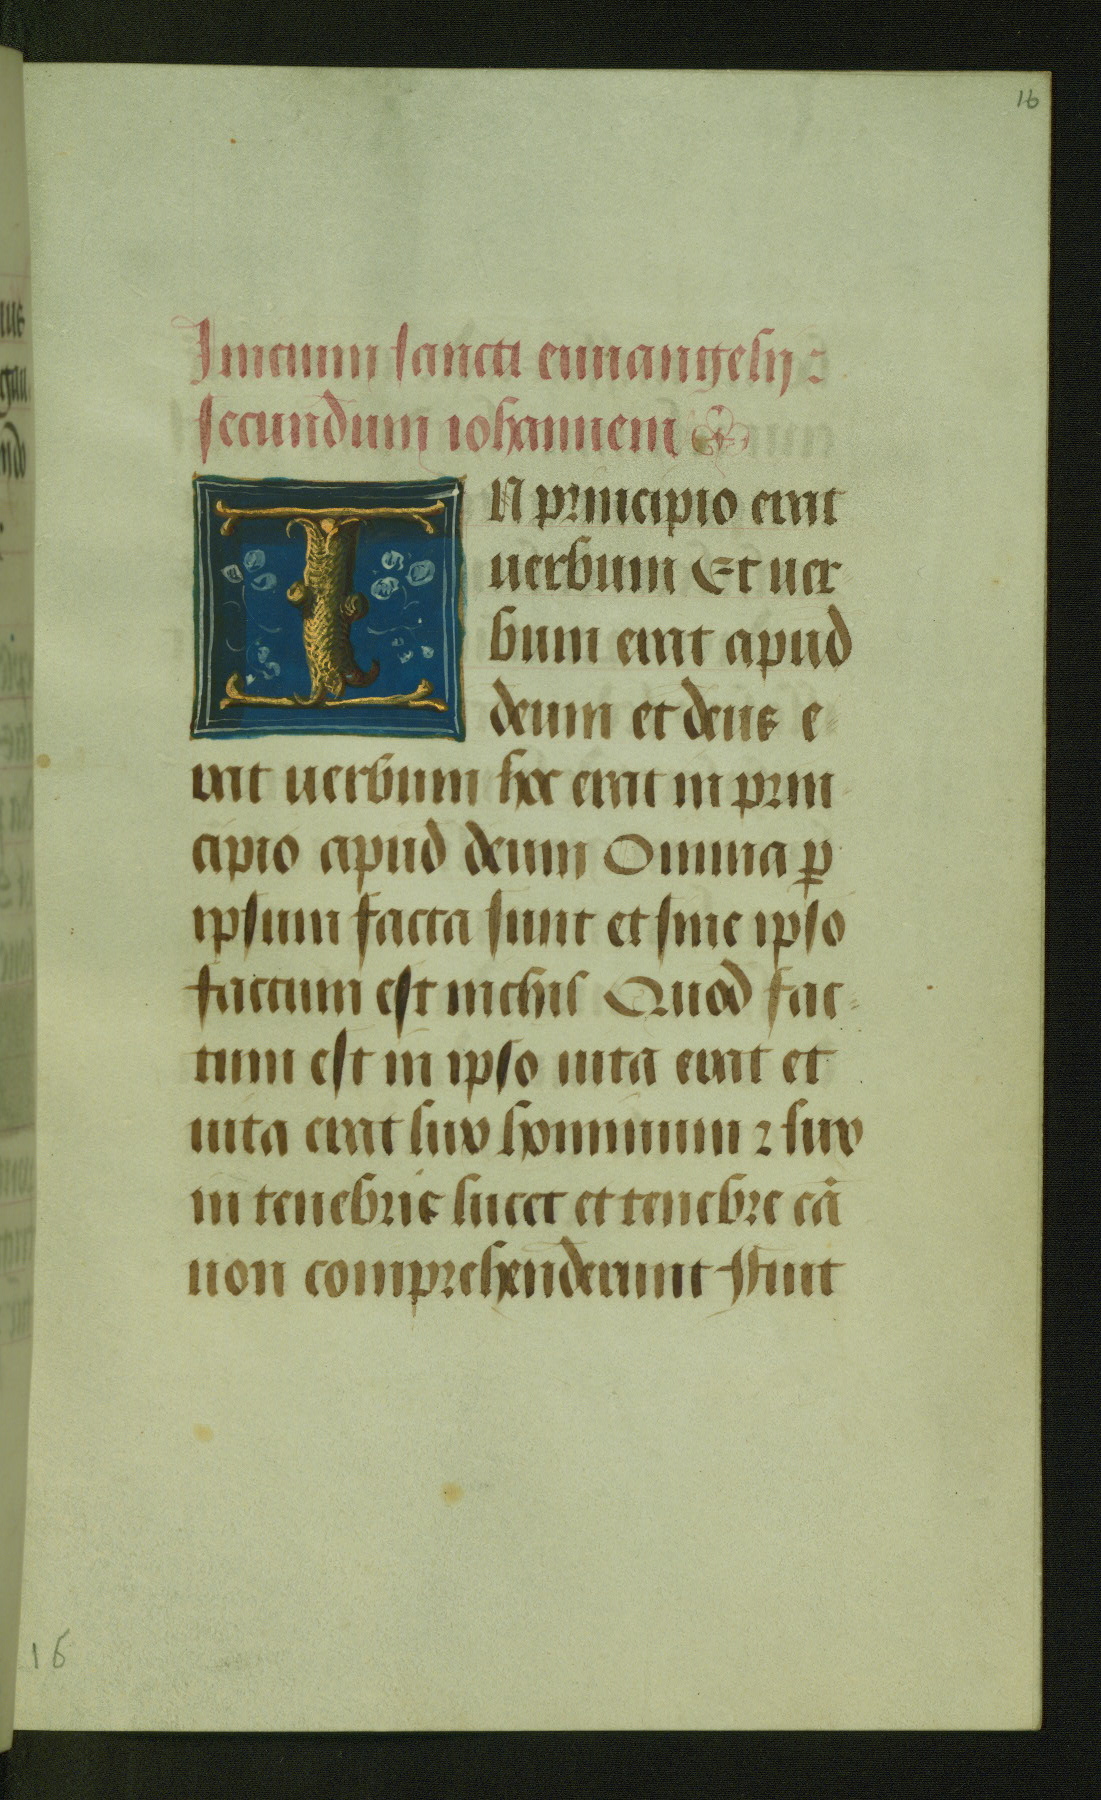 16
Inicium sancti euuangelij :
secundum iohannem
In principio erat
uerbum Et uer
bum erat apud
deum et deus e
rat uerbum hoc erat in prin
cipio apud deum Omnia ꝑ
ipsum facta sunt et sine ipso
factum est nichil Quod fac-
tum est in ipso uita erat et
uita erat lux hominum ⁊ lux
in tenebris lucet et tenebre eā
non comprehenderunt Fuit
16